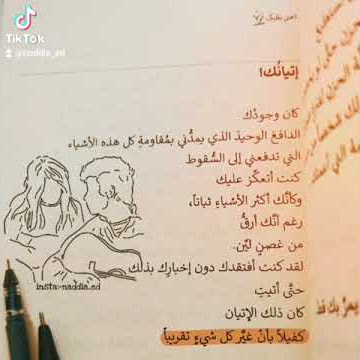 TikTok
@naddia_ed
إتيانُك!
كان وجودُك
الدافعَ الوحيدَ الذي يمدُّني بمُقاومةِ كل هذه الأشياء
التي تدفعني إلى السُّقوط
كنت أتعكّز عليك
وكأنَّك أكثر الأشياءِ ثباتاً،
رغم أنَّك أرقُّ
من غصنٍ ليِّن.
لقد كنت أفتقدك دون إخبارِك بذلك
حتَّى أتيتِ
كان ذلك الإتيان
كفيلاً بأنْ غيَّر كل شيءٍ تقريباً
insta:naddia_ed